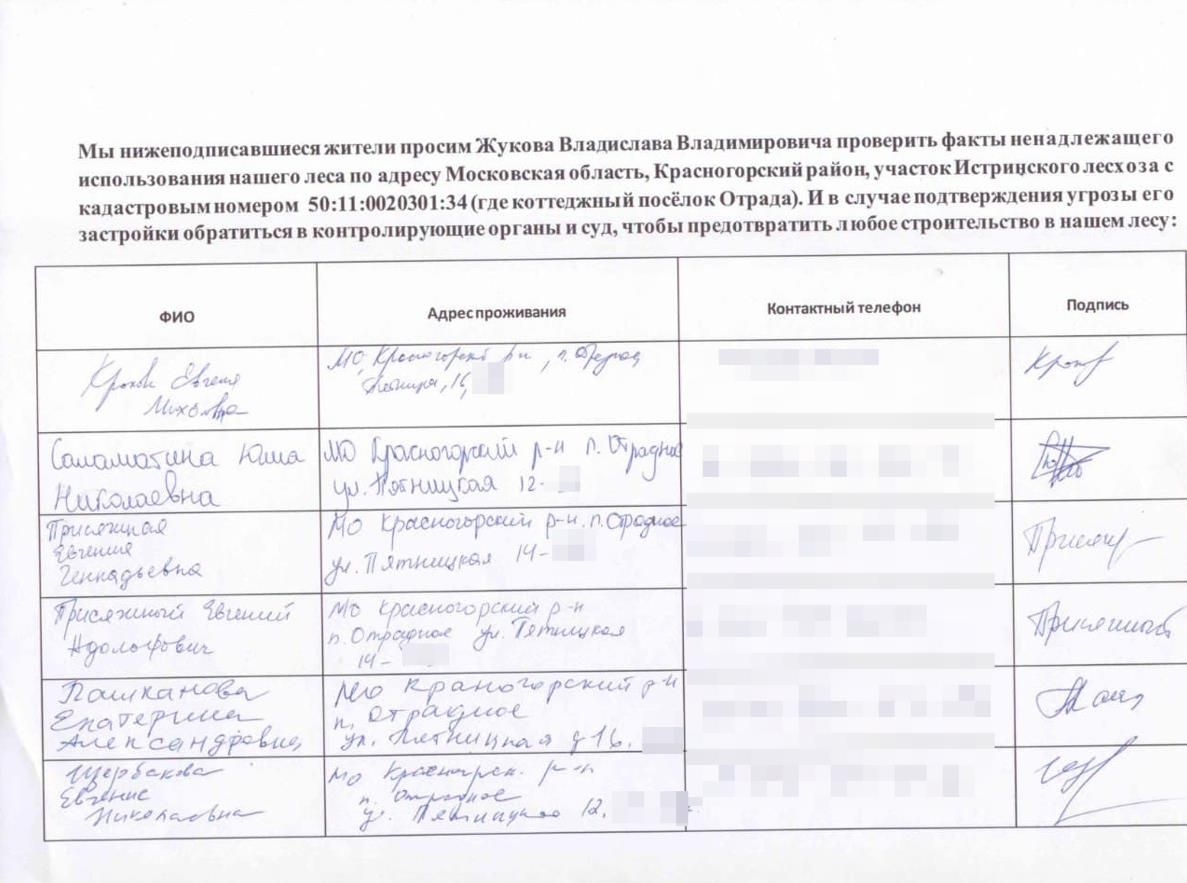 Мы нижеподписавшиеся жители просим Жукова Владислава Владимировича проверить факты ненадлежащего
использования нашего леса по адресу Московская область, Красногорский район, участок Истринского лесхоза с
кадастровым номером 50:11:0020301:34 (где коттеджный посёлок Отрада). И в случае подтверждения угрозы его
застройки обратиться в контролирующие органы и суд, чтобы предотвратить любое строительство в нашем лесу:
ФИО Адрес проживания Контактный телефон Подпись
Евгения
МО, р-н, п.
16,
Саламатина Юлия
Николаевна
МО Красногорский р-н п. Отрадное
ул. Пятницкая 12-
Присяжная
Евгения
Геннадьевна
МО Красногорский р-н. п. Отрадное
ул. Пятницкая 14-
Присяжный Евгений
Адольфович
МО Красногорский р-н
п. Отрадное ул. Пятницкая
14-
Присяжный
Пашканова
Екатерина
Александровна
МО Краногорский р-н
п. Отрадное
ул. Пятницкая д 16.
Щербакова
Евгение
Николаевна
МО Красногорск. р-н
п. Отрадное
у. Пятницкая 12.